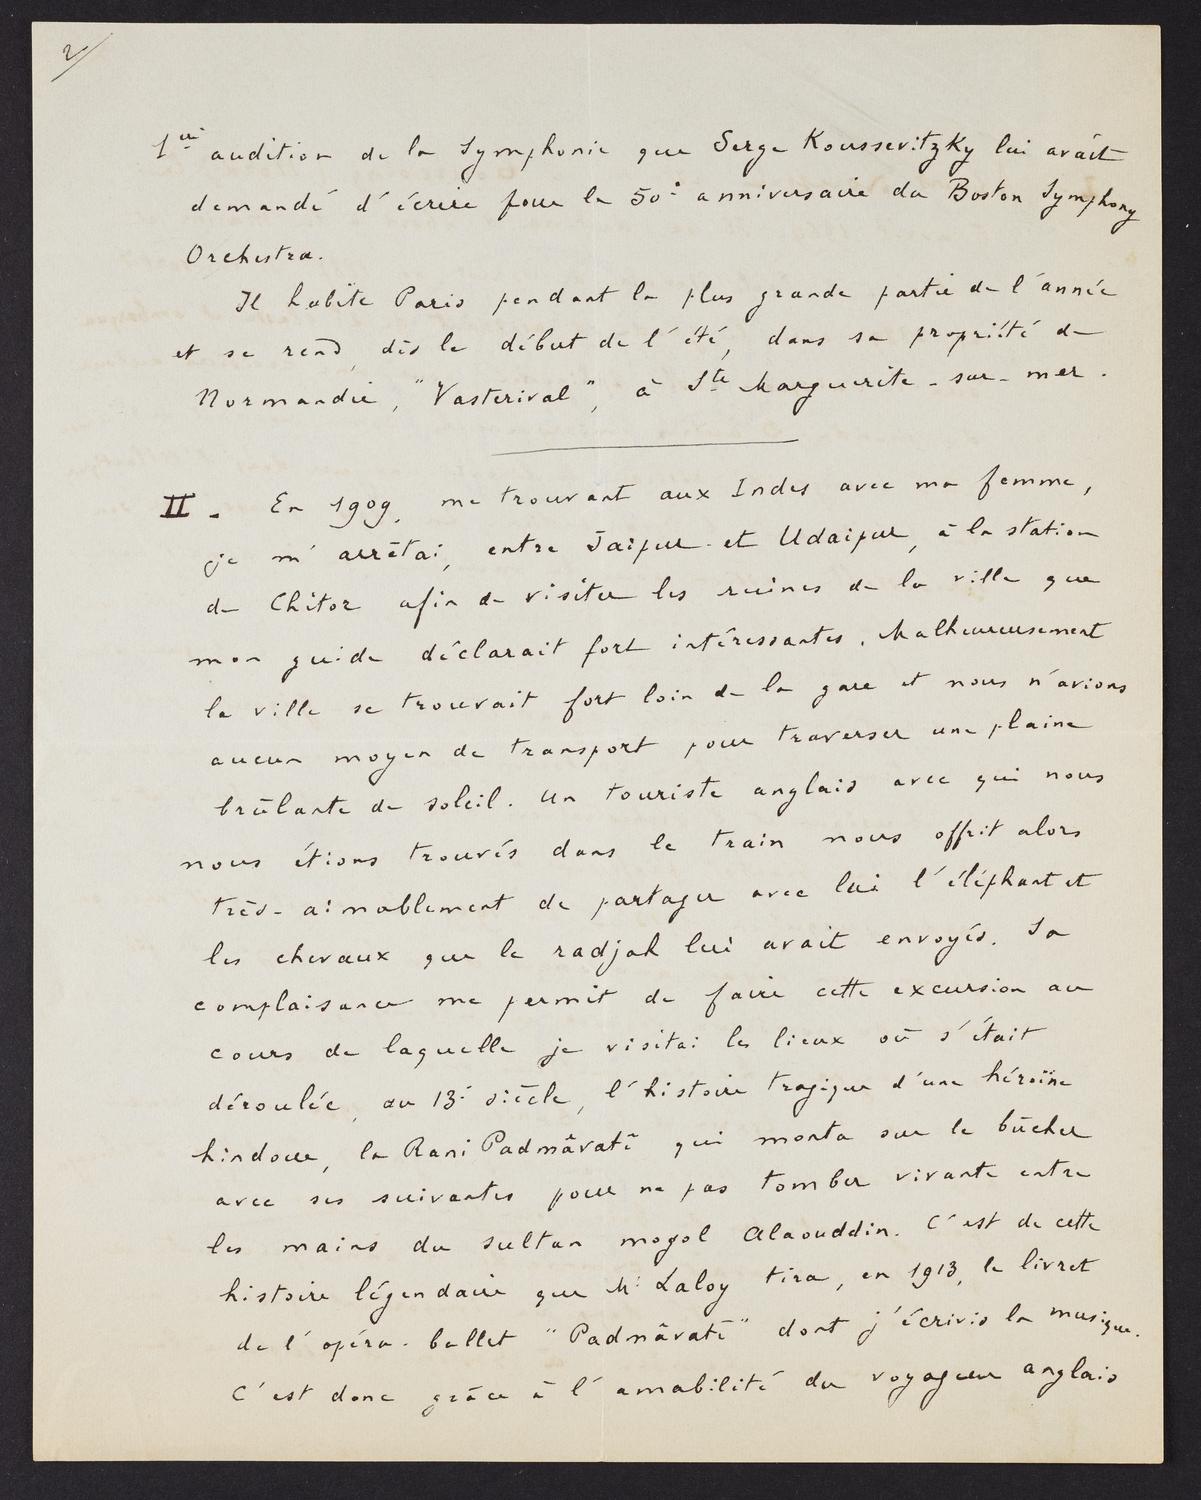 2
1ère audition de la Symphonie que Serge Koussevitzky lui avait
demandé d'écrire pour le 50e anniversaire du Boston Symphony
Orchestra.
Il habite Paris pendant la plus grande partie de l'année
et se rend, dès le début de l'été, dans sa propriété de
Normandie, "Vasterival", à Ste Marguerite-sur-mer.
II. En 1909, me trouvant aux Indes avec ma femme,
je m'arrêtai, entre Jaipur et Udaipur, à la station
de Chitor afin de visiter les ruines de la ville que
mon guide déclarait fort intéressantes. Malheureusement
la ville se trouvait fort loin de la gare et nous n'avions
aucun moyen de transport pour traverser une plaine
brûlante de soleil. Un touriste anglais avec qui nous
nous étions trouvés dans le train nous offrit alors
très-aimablement de partager avec lui l'éléphant et
les chevaux que le radjah lui avait envoyés. Sa
complaisance me permit de faire cette excursion au
cours de laquelle je visitai les lieux où s'était
déroulée, au 13e siècle, l'histoire tragique d'une héroïne
hindoue, la Rani Padmâvatî qui monta sur le bûcher
avec ses suivantes pour ne pas tomber vivante entre
les mains du sultan mogol Alaouddin. C'est de cette
histoire légendaire que Mr Laloy tira, en 1913, le livret
de l'opéra-ballet "Padmâvatî" dont j'écrivis la musique.
C'est donc grâce à l'amabilité du voyageur anglais